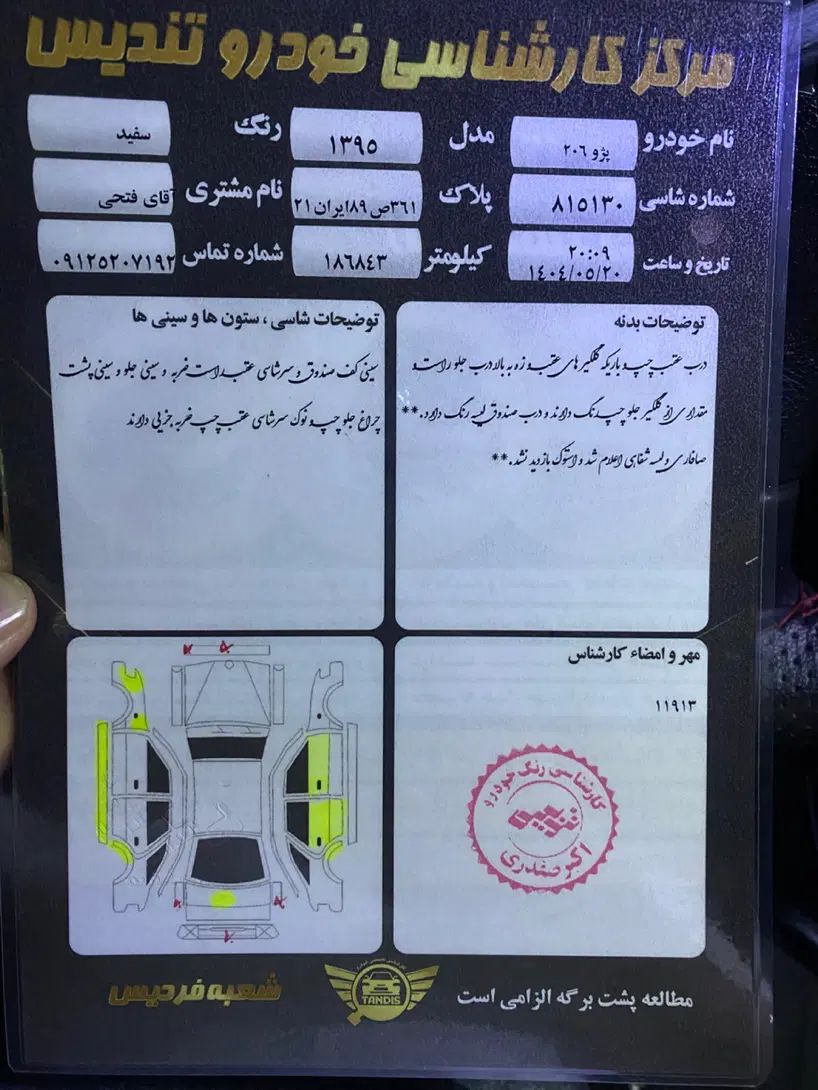 مرکز کارشناسی خودرو تندیس
نام خودرو پژو ۲۰۶ مدل ۱۳۹۵ رنگ سفید
شماره شاسی ۸۱۵۱۳۰ پلاک ۳۶۱ص۸۹ایران۲۱ نام مشتری آقای فتحی
تاریخ و ساعت ۲۰:۰۹ ۱۴۰۴/۰۵/۲۰ کیلومتر ۱۸۶۸۴۳ شماره تماس ۰۹۱۲۵۲۰۷۱۹۲
توضیحات بدنه
درب عقب چپ و باریکه گلگیر های عقب و زه به بالا درب جلو راست و
مقداری از گلگیر جلو چپ رنگ دارند و درب صندوق لیسه رنگ دارد.**
صافکاری و لیسه شفاهی اعلام شد و استوک بازدید نشد.**
توضیحات شاسی ، ستون ها و سینی ها
سینی کف صندوق و سرشاسی عقب راست ضربه و سینی جلو و سینی پشت
چراغ جلو چپ و نوک سرشاسی عقب چپ ضربه جزیی دارند
مهر و امضاء کارشناس
۱۱۹۱۳
کارشناسی رنگ خودرو
تندیس
اکبر صفدری
TANDIS
مطالعه پشت برگه الزامی است
شعبه فردیس